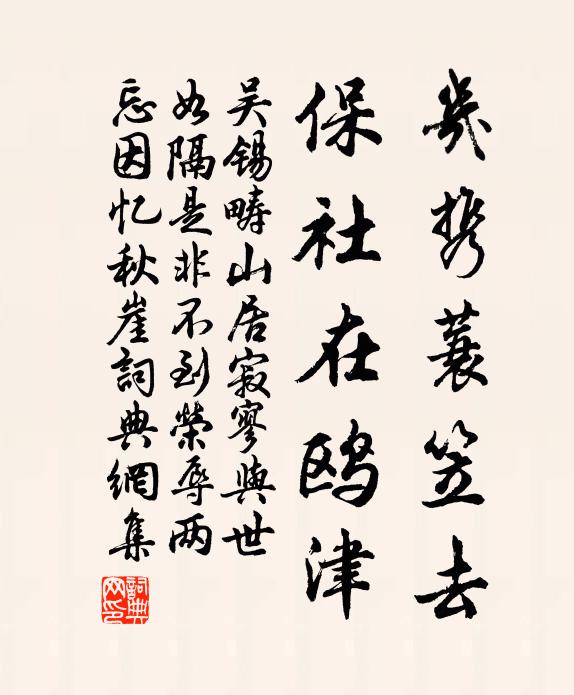 幾携蓑笠去
保社在鸥津
吴锡畴山居寂寥與世
如隔是非不到榮辱两
忘因忆秋崖詞典網集
詞典网印